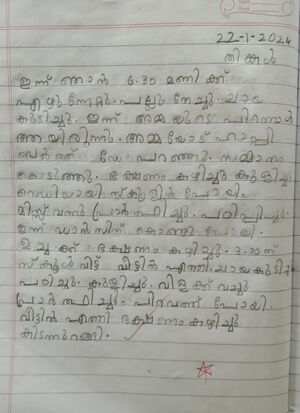 22-1-2024
തിങ്കൾ
ഇന്ന് ഞാൻ 6.30 മണിക്ക്
എഴുന്നേറ്റു. പല്ലു തേച്ചു. ചായ
കുടിച്ചു. ഇന്ന് അമ്മയുടെ പിറന്നാൾ
ആയിരുന്നു. അമ്മയോട് ഹാപ്പി
ബർത്ത് ഡേ പറഞ്ഞു. സമ്മാനം
കൊടുത്തു. ഭക്ഷണം കഴിച്ചു കുളിച്ചു
റെഡിയായി സ്കൂളിൽ പോയി.
മിസ്സ് വന്നു പ്രാർത്ഥിച്ചു. പഠിപ്പിച്ചു.
ഇന്ന് ഡാൻസിന് കൊണ്ടു പോയി.
ഉച്ചക്ക് ഭക്ഷണം കഴിച്ചു. 3.30ന്
സ്കൂൾ വിട്ട് വീട്ടിൽ എത്തി. ചായ കുടിച്ചു
പഠിച്ചു. കുളിച്ചു. വിളക്ക് വച്ചു
പ്രാർത്ഥിച്ചു. പോയി.
വീട്ടിൽ എത്തി ഭക്ഷണം കഴിച്ചു
കിടന്നുറങ്ങി.